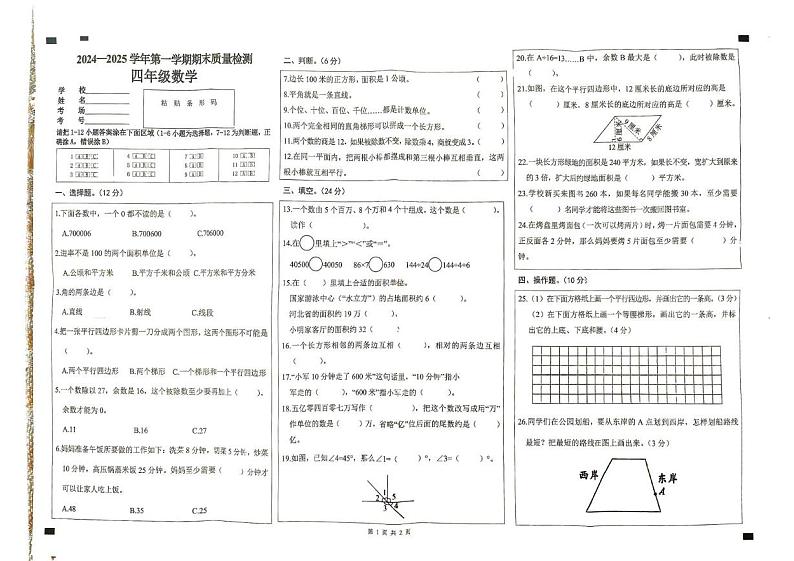 2024—2025学年第一学期期末质量检测
四年级数学
学 校
姓 名
考 场
考 号
粘 贴 条 形 码
请把1-12小题答案涂在下面区域(1-6小题为选择题,7-12为判断题,正
确涂A,错误涂B)
一、选择题。(12分)
1.下面各数中,一个0都不读的是( )。
A.700006 B.700600 C.706000
2.进率不是100的两个面积单位是( )。
A.公顷和平方米 B.平方千米和公顷 C.平方米和平方分米
3.角的两条边是( )。
A.直线 B.射线 C.线段
4.把一张平行四边形卡片剪一刀分成两个图形,这两个图形不可能是
( )。
A.两个平行四边形 B.两个梯形 C.一个梯形和一个平行四边形
5.一个数除以27,余数是16,这个被除数至少要再加上( ),
余数才能为0。
A.11 B.16 C.27
6.妈妈准备午饭所要做的工作如下:洗菜8分钟,切菜5分钟,炒菜
10分钟,高压锅蒸米饭25分钟。妈妈至少需要( )分钟才
可以让家人吃上饭。
A.48 B.35 C.25
二、判断。(6分)
7.边长100米的正方形,面积是1公顷。 ( )
8.平角就是一条直线。 ( )
9.个位、十位、百位、千位……都是计数单位。 ( )
10.两个完全相同的直角梯形可以拼成一个长方形。 ( )
11.两个数的商是12,如果被除数不变,除数乘4,商就变成3。 ( )
12.在同一平面内,把两根小棒都摆成和第三根小棒互相垂直,这两
根小棒就互相平行。 ( )
三、填空。(24分)
13.一个数由5个百万、8个万和4个十组成,这个数是( ),
读作( )。
14.在○里填上“>”“<”或“=”。
40500○40050 86×7○630 144÷24○144÷4÷6
15.在( )里填上合适的面积单位。
国家游泳中心(“水立方”)的占地面积约6( )。
河北省的面积约19万( )。
小明家客厅的面积约32( )
16.一个长方形相邻的两条边互相( ),相对的两条边互相
( )。
17.“小军10分钟走了600米”这句话里,“10分钟”指小
军走的( ),“600米”指小军走的( )。
18.五亿零四百零七万写作( ),把这个数改写成用“万”
作单位的数是( )万,省略“亿”位后面的尾数约是( )
亿。
19.如图,已知∠4=45°,那么∠1=( )°,∠3=( )°。
2 1 5
3 4
第 1 页 共 2 页
20.在A÷16=13……B中,余数B最大是( ),此时被除数是
( )。
21.如图,在这个平行四边形中,12厘米长的底边所对应的高是
( )厘米,8厘米长的底边所对应的高是( )厘米。
6厘米 9厘米 8厘米
12厘米
22.一块长方形绿地的面积是240平方米,如果长不变,宽扩大到原来
的3倍,扩大后的绿地面积是( )平方米。
23.学校新买来图书260本,如果每名同学能搬30本,至少需要
( )名同学才能将这些图书一次搬回图书室。
24.在烤盘里烤面包(一次可以烤两片)时,烤一片面包需要4分钟,
正反面各2分钟,那么妈妈要烤5片面包至少需要( )分
钟。
四、操作题。(10分)
25.(1)在下面方格纸上画一个平行四边形,并画出它的一条高。(3分)
(2)在下面方格纸上画一个等腰梯形,画出它的一条高,并标
出它的上底、下底和腰。(4分)
26.同学们在公园划船,要从东岸的A点划到西岸,怎样划船路线
最短?把最短的路线在图上画出来。(3分)
西岸 东岸
A